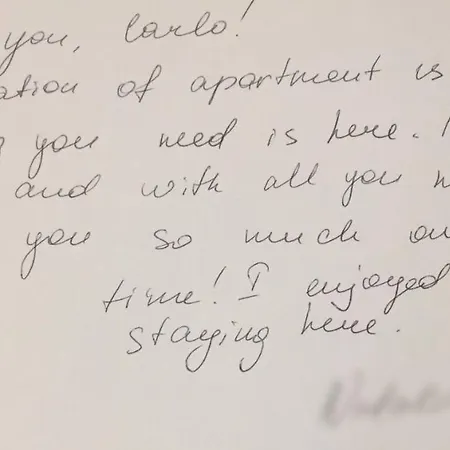 you, Carlo!
ation of apartment is
you need is here.
and with all you
you so much
time! I enjoyed
staying here.